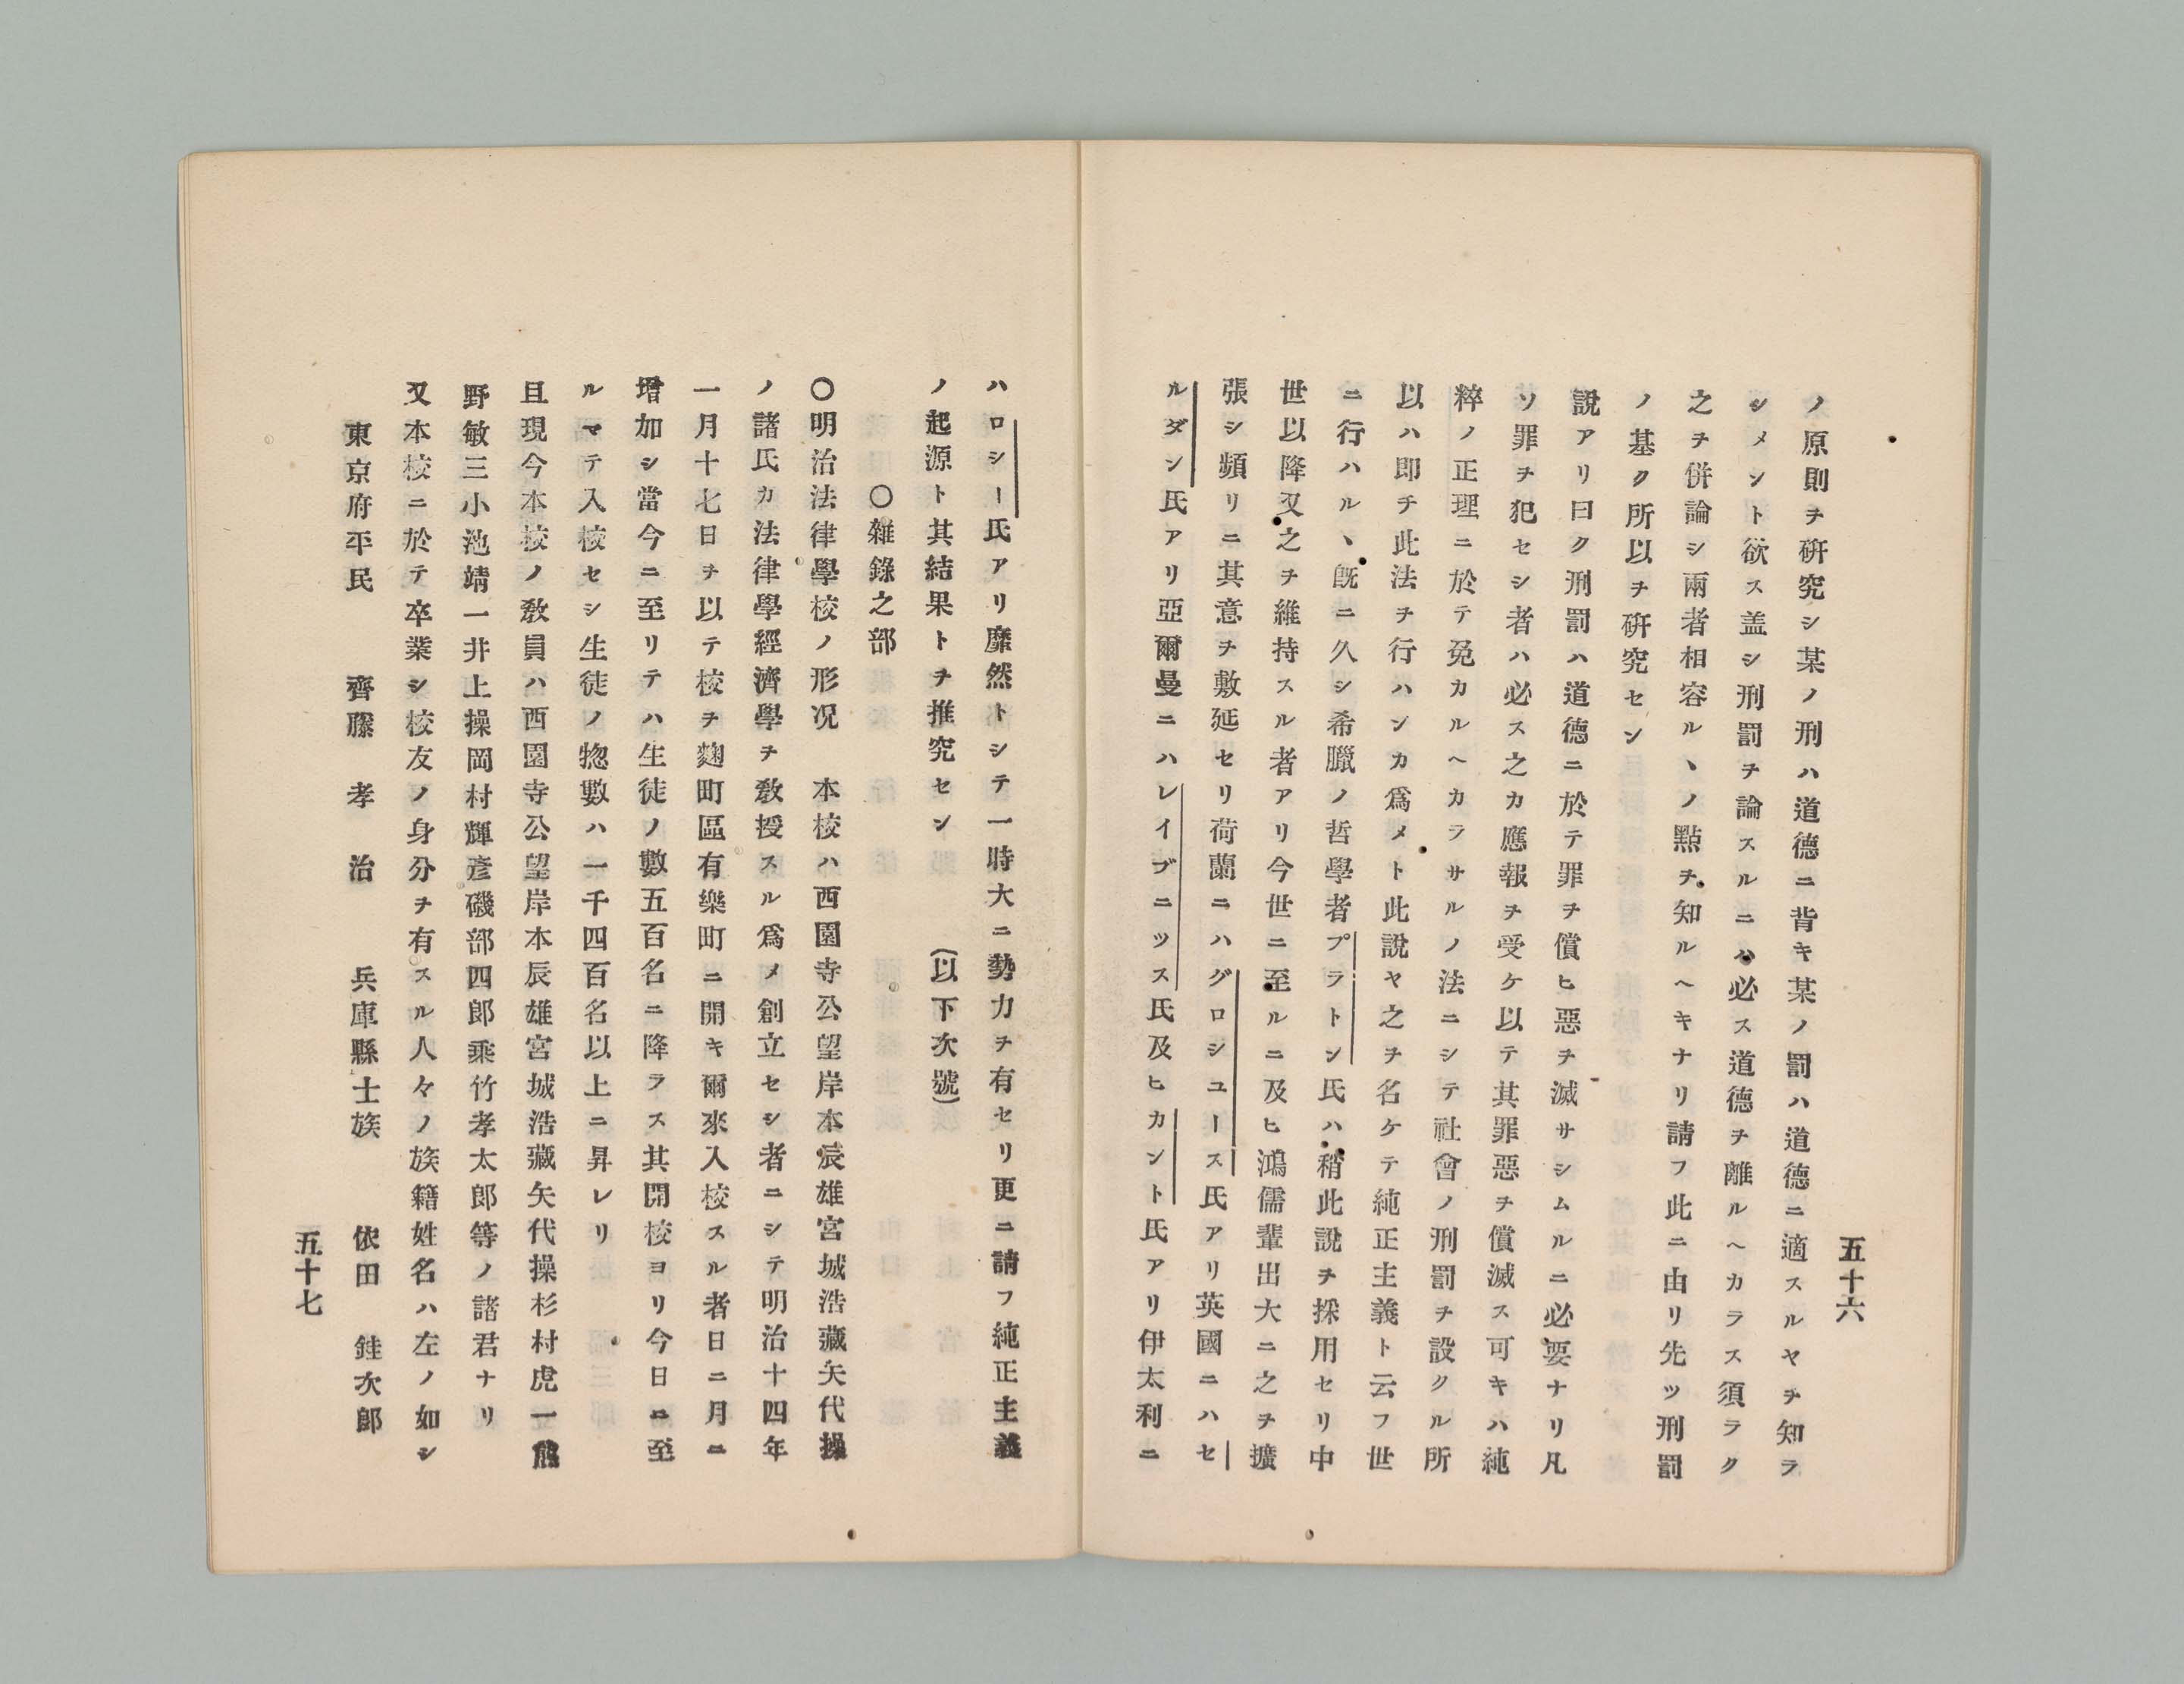 五十六
ノ原則ヲ硏究シ某ノ刑ハ道德ニ背キ某ノ罰ハ道德ニ適スルヤヲ知ラ
シメント欲ス盖シ刑罰ヲ論スルニハ必ス道德ヲ離ルヘカラス須ラク
之ヲ併論シ兩者相容ルヽノ點ヲ知ルヘキナリ請フ此ニ由リ先ツ刑罰
ノ基ク所以ヲ硏究セン
說アリ曰ク刑罰ハ道德ニ於テ罪ヲ償ヒ惡ヲ滅サシムルニ必要ナリ凡
ソ罪ヲ犯セシ者ハ必ス之カ應報ヲ受ケ以テ其罪惡ヲ償滅ス可キハ純
粹ノ正理ニ於テ免カルヘカラサルノ法ニシテ社會ノ刑罰ヲ設クル所
以ハ卽チ此法ヲ行ハンカ爲メト此說ヤ之ヲ名ケテ純正主義ト云フ世
ニ行ハルヽ旣ニ久シ希臘ノ哲學者プラトン氏ハ稍此說ヲ採用セリ中
世以降又之ヲ維持スル者アリ今世ニ至ルニ及ヒ鴻儒輩出大ニ之ヲ擴
張シ頻リニ其意ヲ敷延セリ荷蘭ニハグロシユース氏アリ英國ニハセ
ルダン氏アリ亞爾曼ニハレイブニッス氏及ヒカント氏アリ伊太利ニ
ハロシー氏アリ靡然トシテ一時大ニ勢力ヲ有セリ更ニ請フ純正主義
ノ起源ト其結果トヲ推究セン　　（以下次號）
〇雜錄之部
〇明治法律學校ノ形况　本校ハ西園寺公望岸本辰雄宮城浩藏矢代操
ノ諸氏カ法律學經濟學ヲ敎授スル爲メ創立セシ者ニシテ明治十四年
一月十七日ヲ以テ校ヲ麴町區有樂町ニ開キ爾來入校スル者日ニ月ニ
增加シ當今ニ至リテハ生徒ノ數五百名ニ降ラス其開校ヨリ今日ニ至
ルマテ入校セシ生徒ノ惣數ハ一千四百名以上ニ昇レリ
且現今本校ノ敎員ハ西園寺公望岸本辰雄宮城浩藏矢代操杉村虎一熊
野敏三小池靖一井上操岡村輝彥磯部四郎乘竹孝太郎等ノ諸君ナリ
又本校ニ於テ卒業シ校友ノ身分ヲ有スル人々ノ族籍姓名ハ左ノ如シ
東京府平民　　齊藤孝治　　兵庫縣士族　　依田銈次郎
五十七